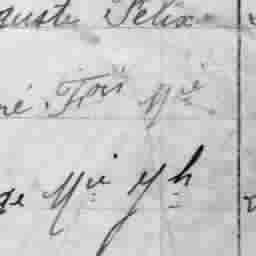 guste Félix
né Fois Mie
de Mie Yh